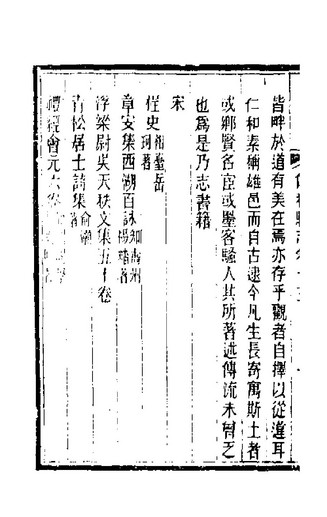 皆畔於道有美在焉亦存乎觀者自擇以從違耳
仁和素稱雄邑而自古逮今凡生長寄寓斯土者
或鄉賢名宦或墨客騷人其所著述傳流未嘗乏
也爲是乃志書籍
宋
桯史 相臺岳珂著
章安集西湖百詠 知
浮梁尉吳天秩文集五十卷
青松居士詩集 俞
禮經會元